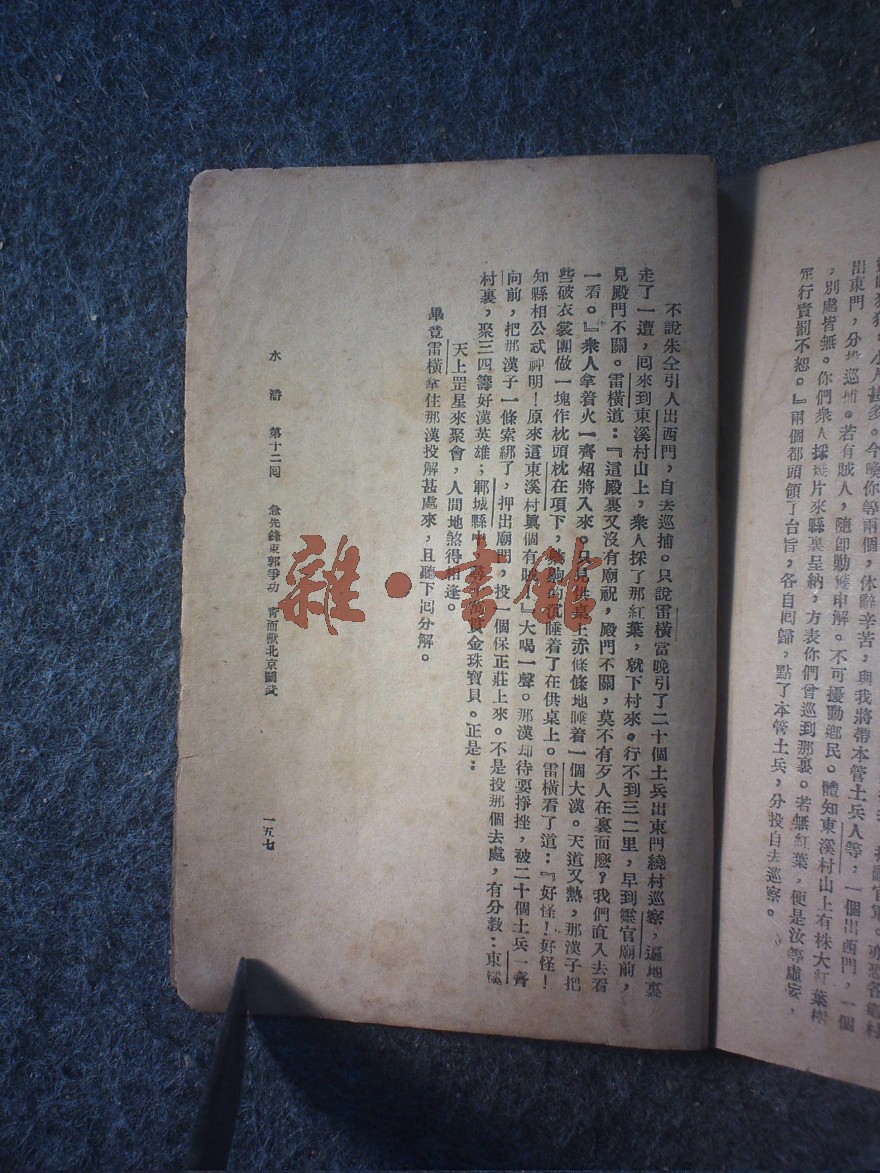 出東門，分投巡捕。若有賊人，隨卽勦獲申解。不可擾動鄉民。體知東溪村山上有株大紅葉樹
，別處皆無。你們衆人採幾片來縣裏呈納，方表你們曾巡到那裏。若無紅葉，便是汝等虛妄，
定行責罰不恕。』兩個都頭領了台旨，各自囘歸，點了本管土兵，分投自去巡察。
不說朱仝引人出西門，自去巡捕。只說雷橫當晚引了二十個土兵出東門繞村巡察，遍地裏
走了一遭，囘來到東溪村山上，衆人採了那紅葉，就下村來。行不到三二里，早到靈官廟前，
見殿門不關。雷橫道：『這殿裏又沒有廟祝，殿門不關，莫不有歹人在裏面麽？我們直入去看
一看。』衆人拿着火一齊炤將入來。只見供桌上赤條條地睡着一個大漢。天道又熱，那漢子把
些破衣裳團做一塊作枕頭枕在項下，的沉睡着了在供桌上。雷橫看了道：『好怪！好怪！
知縣相公忒神明！原來這東溪村眞個有賊！』大喝一聲。那漢却待要掙挫，被二十個土兵一齊
向前，把那漢子一條索綁了，押出廟門，投一個保正莊上來。不是投那個去處，有分教：東溪
村裏，聚三四籌好漢英雄；鄆城縣中，貫金珠寶貝。正是：
天上罡星來聚會，人間地煞得相逢。
畢竟雷橫拿住那漢投解甚處來，且聽下囘分解。
水滸 第十二囘 急先鋒東郭爭功 靑面獸北京鬬武
一五七
雜·書館